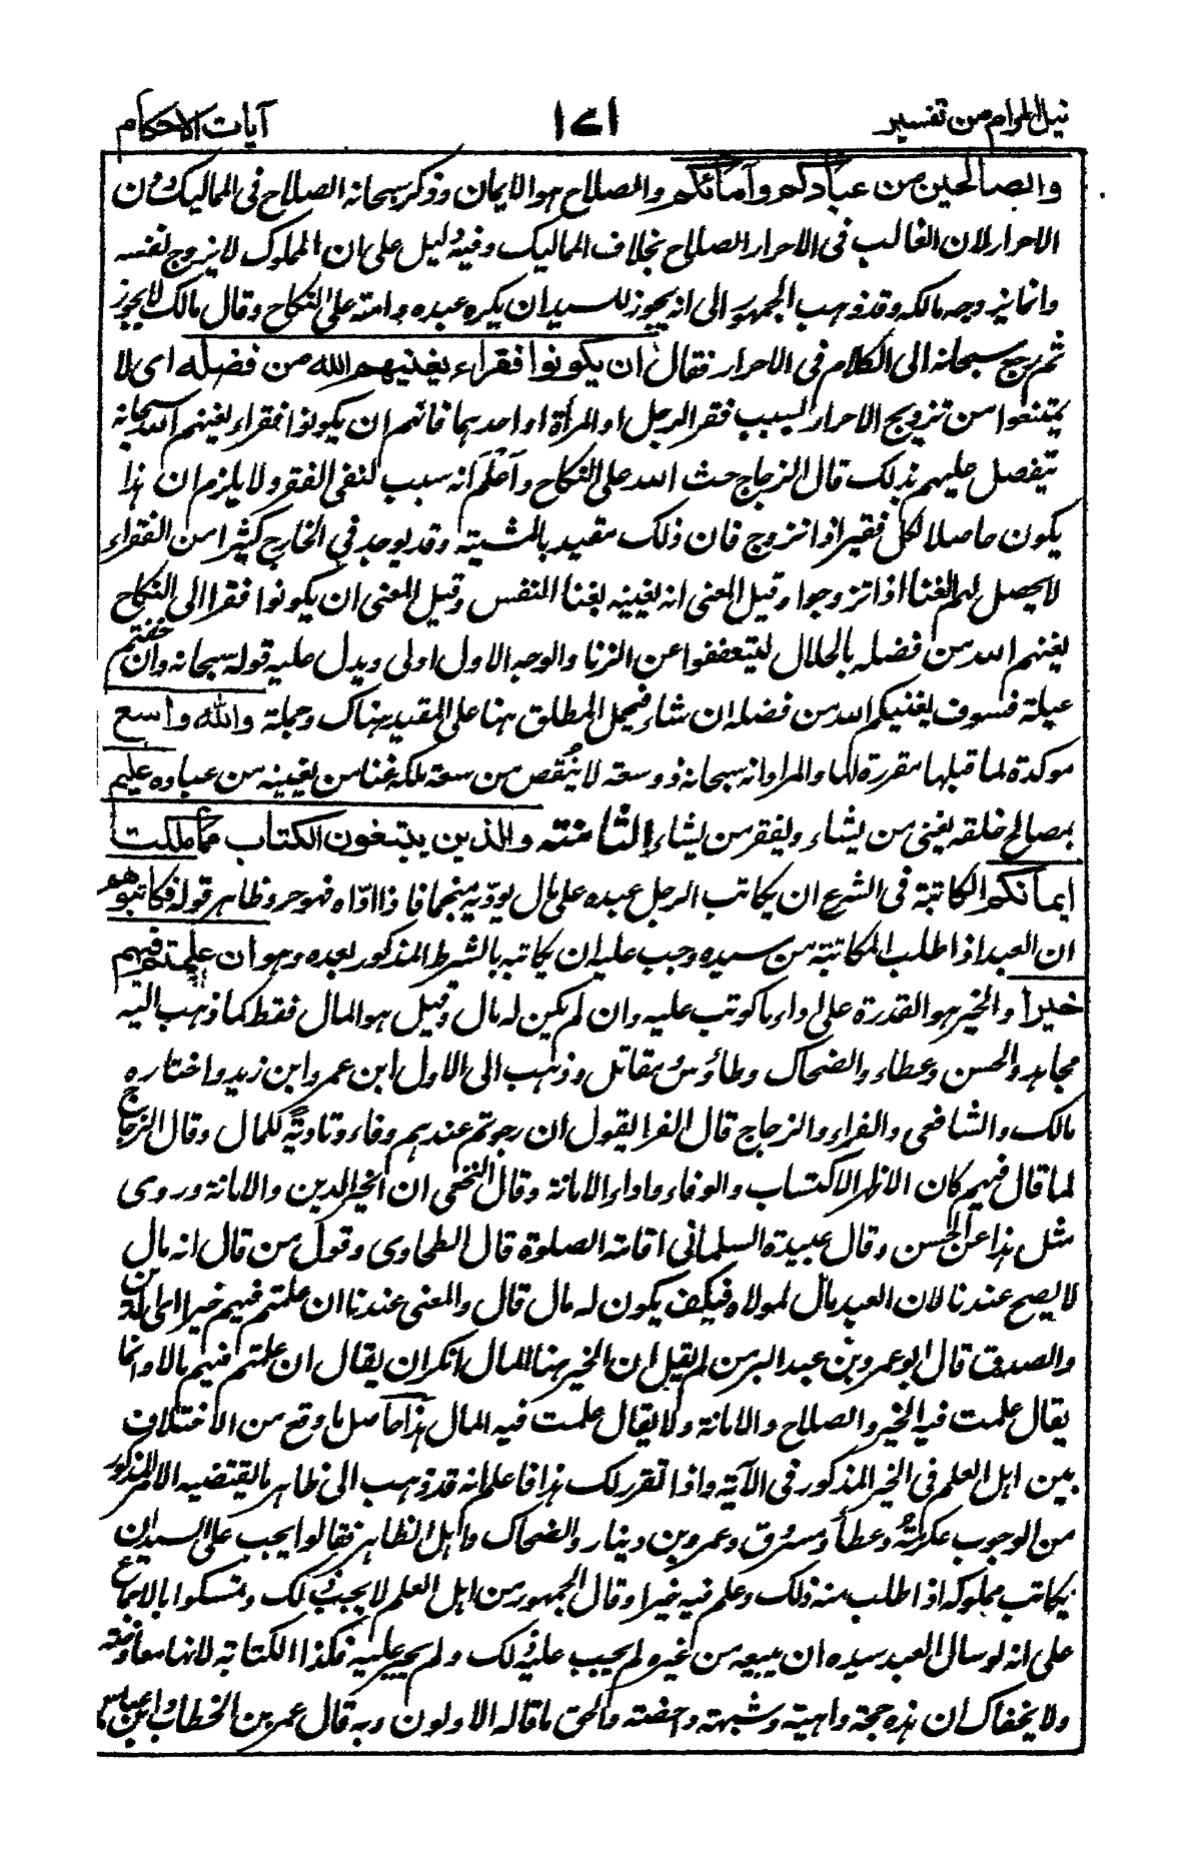 نيل المرام من تفسير ١٧١ آيات الاحكام
والصالحين من عبادكم وأمائكم والصلاح هو الايمان وذكر سبحانه الصلاح فى المماليك دون
الاحرار لان الغالب فى الاحرار الصلاح بخلاف المماليك وفيه دليل على ان المملوك لا يزوج نفسه
وانما يزوجه مالكه وقد ذهب الجمهور الى انه يجوز للسيد ان يكره عبده وامته على النكاح وقال مالك لا يجوز
ثم رجع سبحانه الى الكلام فى الاحرار فقال ان يكونوا فقراء يغنيهم الله من فضله اى لا
يمتنعوا من تزويج الاحرار لسبب فقر الرجل او المرأة او احدهما فانهم ان يكونوا فقراء يغنهم الله سبحانه
يتفضل عليهم بذلك قال الزجاج حث الله على النكاح وأعلم انه سبب لنفى الفقر ولا يلزم ان هذا
يكون حاصلا لكل فقير اذا تزوج فان ذلك مقيد بالمشيته وقد يوجد فى الخارج كثيرا من الفقراء
لا يحصل لهم الغنا اذا تزوجوا وقيل المعنى انه يغينه بغنا النفس وقيل المعنى ان يكونوا فقرا الى النكاح
يغنهم الله من فضله بالحلال ليتعففوا عن الزنا والوجه الاول اولى ويدل عليه قوله سبحانه وان خفتم
عيلة فسوف يغنيكم الله من فضله ان شاء فيحمل المطلق هنا على المقيد هناك وجملة والله واسع
موكدة لما قبلها مقررة لها والمراد انه سبحانه ذو وسعة لا ينقص من سعة ملكه غنا من يغينه من عباده عليم
بمصالح خلقه يغنى من يشاء ويفقر من يشاء الثامنته والذين يبتغون الكتاب مما ملكت
ايمانكم المكاتبة فى الشرع ان يكاتب الرجل عبده على مال يوديه منجما فاذا ادّاه فهو حر وظاهر قوله فكاتبوهم
ان العبد اذا طلب المكاتبة من سيده وجب عليه ان يكاتبه بالشرط المذكور بعده وهو ان علمتم فيهم
خيرا والخير هو القدرة على اداء ما كوتب عليه وان لم يكن له مال وقيل هو المال فقط كما ذهب اليه
مجاهد والحسن وعطاء والضحاك وطاؤس ومقاتل وذهب الى الاول ابن عمر وابن زيد واختاره
مالك والشافعى والفراء والزجاج قال الفرا يقول ان رجوتم عندهم وفاء وتادية للمال وقال الزجاج
لما قال فيهم كان الاظهر الاكتساب والوفاء واداء الامانة وقال النخعى ان الخير الدين والامانة وروى
مثل هذا عن الحسن وقال عبيدة السلمانى اقامة الصلوة قال الطحاوى وقول من قال انه مال
لا يصح عندنا لان العبد مال لمولاه فكيف يكون له مال قال والمعنى عندنا ان علمتم فيهم خيرا اى الدين
والصدق قال ابو عمرو بن عبد البر من لم يقل ان الخير هنا المال انكر ان يقال ان علمتم فيهم مالا وانما
يقال علمت فيه الخير والصلاح والامانة ولا يقال علمت فيه المال هذا حاصل ما وقع من الاختلاف
بين اهل العلم فى الخير المذكور فى الآية واذا تقرر لك هذا فاعلم انه قد ذهب الى ظاهر ما يقتضيه الامر المذكور
من الوجوب عكرمة وعطأ ومسروق وعمرو بن دينار والضحاك واهل الظاهر فقالوا يجب على السيد ان
يكاتب مملوكه اذا طلب منه ذلك وعلم فيه خيرا وقال الجمهور من اهل العلم لا يجب ذلك وتمسكوا بالاجماع
على انه لو سال العبد سيده ان يبيعه من غيره لم يجب عليه ذلك ولم يجبر عليه فكذا الكتابة لانها معاوضته
ولا يخفاك ان هذه حجة واهية وشبهته داحضته والحق ما قاله الاولون وبه قال عمر بن الخطاب وابن عباس